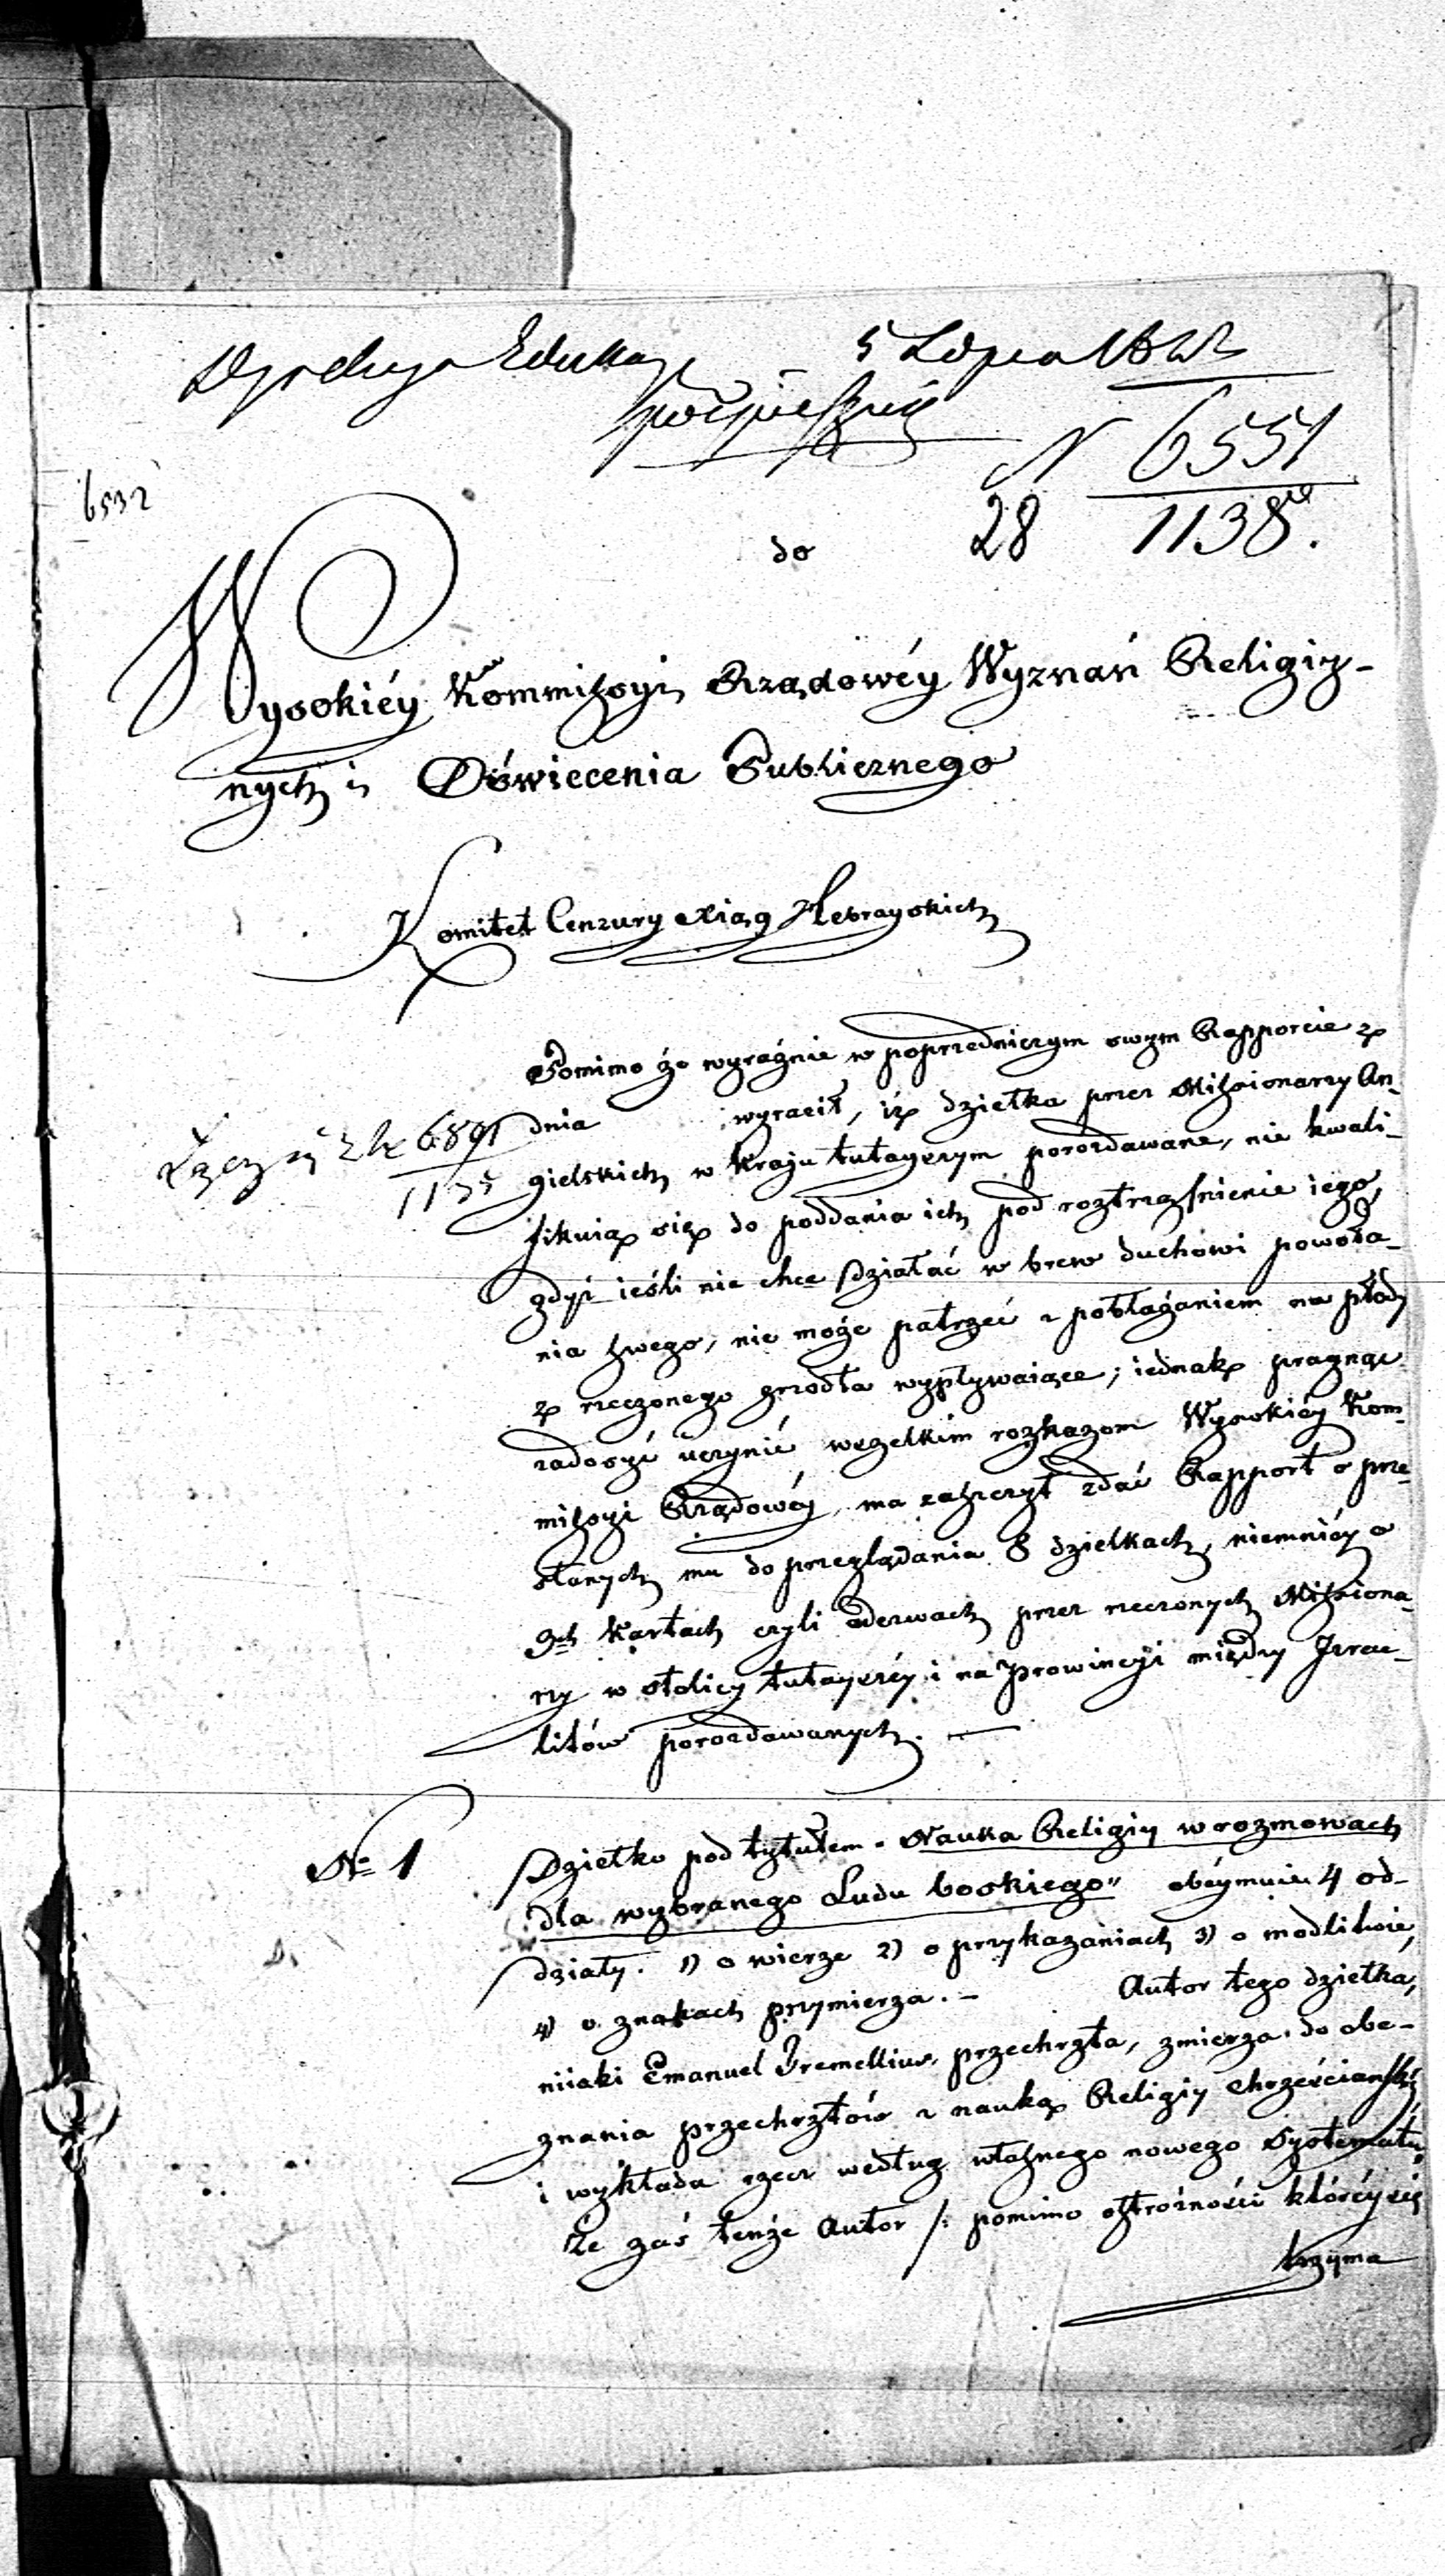 Dyrekcya Edukac
5 Lipca 1822
pośpiesznie
N 6551
6532
28 1138.
do
Wysokiéy Kommissyi Rządowéy Wyznań Religiy-
nych i Oświecenia Publicznego
Komitet Cenzury Xiąg Hebrayskich
Pomimo że wyraźnie w poprzedniczym swym Rapporcie z
dnia wyraził, iż dziełka przez Missionarzy An-
Łączy się z N 6891
gielskich w kraju tutayszym porozdawane, nie kwali-
fikuią się do poddania ich pod roztrząśnienie iego,
gdyż ieśli nie chce działać w brew duchowi powoła-
nia swego, nie może patrzeć z pobłażaniem na płody
z rzeczonego zrzodła wypływaiące; iednak pragnąc
zadosyć uczynić wszelkim rozkazom Wysokiéy Kom-
missyi Rządowéy, ma zaszczyt zdać Rapport o prze-
słanych mu do przeglądania 8 dziełkach, niemniéy o
9ch Kartach czyli oderwach przez rzeczonych Missiona-
rzy w stolicy tutayszéy i na Prowincyi między Izrae-
litów porozdawanych. —
No 1
Dziełko pod tytułem „Nauka Religiy w rozmowach
dla wybranego Ludu boskiego" obéymuie 4 od-
działy. 1) o wierze 2) o przykazaniach 3) o modlitwie,
4) o znakach przymierza. – Autor tego dziełka,
niiaki Emanuel Tremellius, przechrzta, zmierza do obe-
znania przechrztów z nauką Religiy Chrześciańskiéy
i wykłada rzecz według własnego nowego Systematu.
Że zaś tenże Autor /: pomimo ostrożności któréy się
trzyma